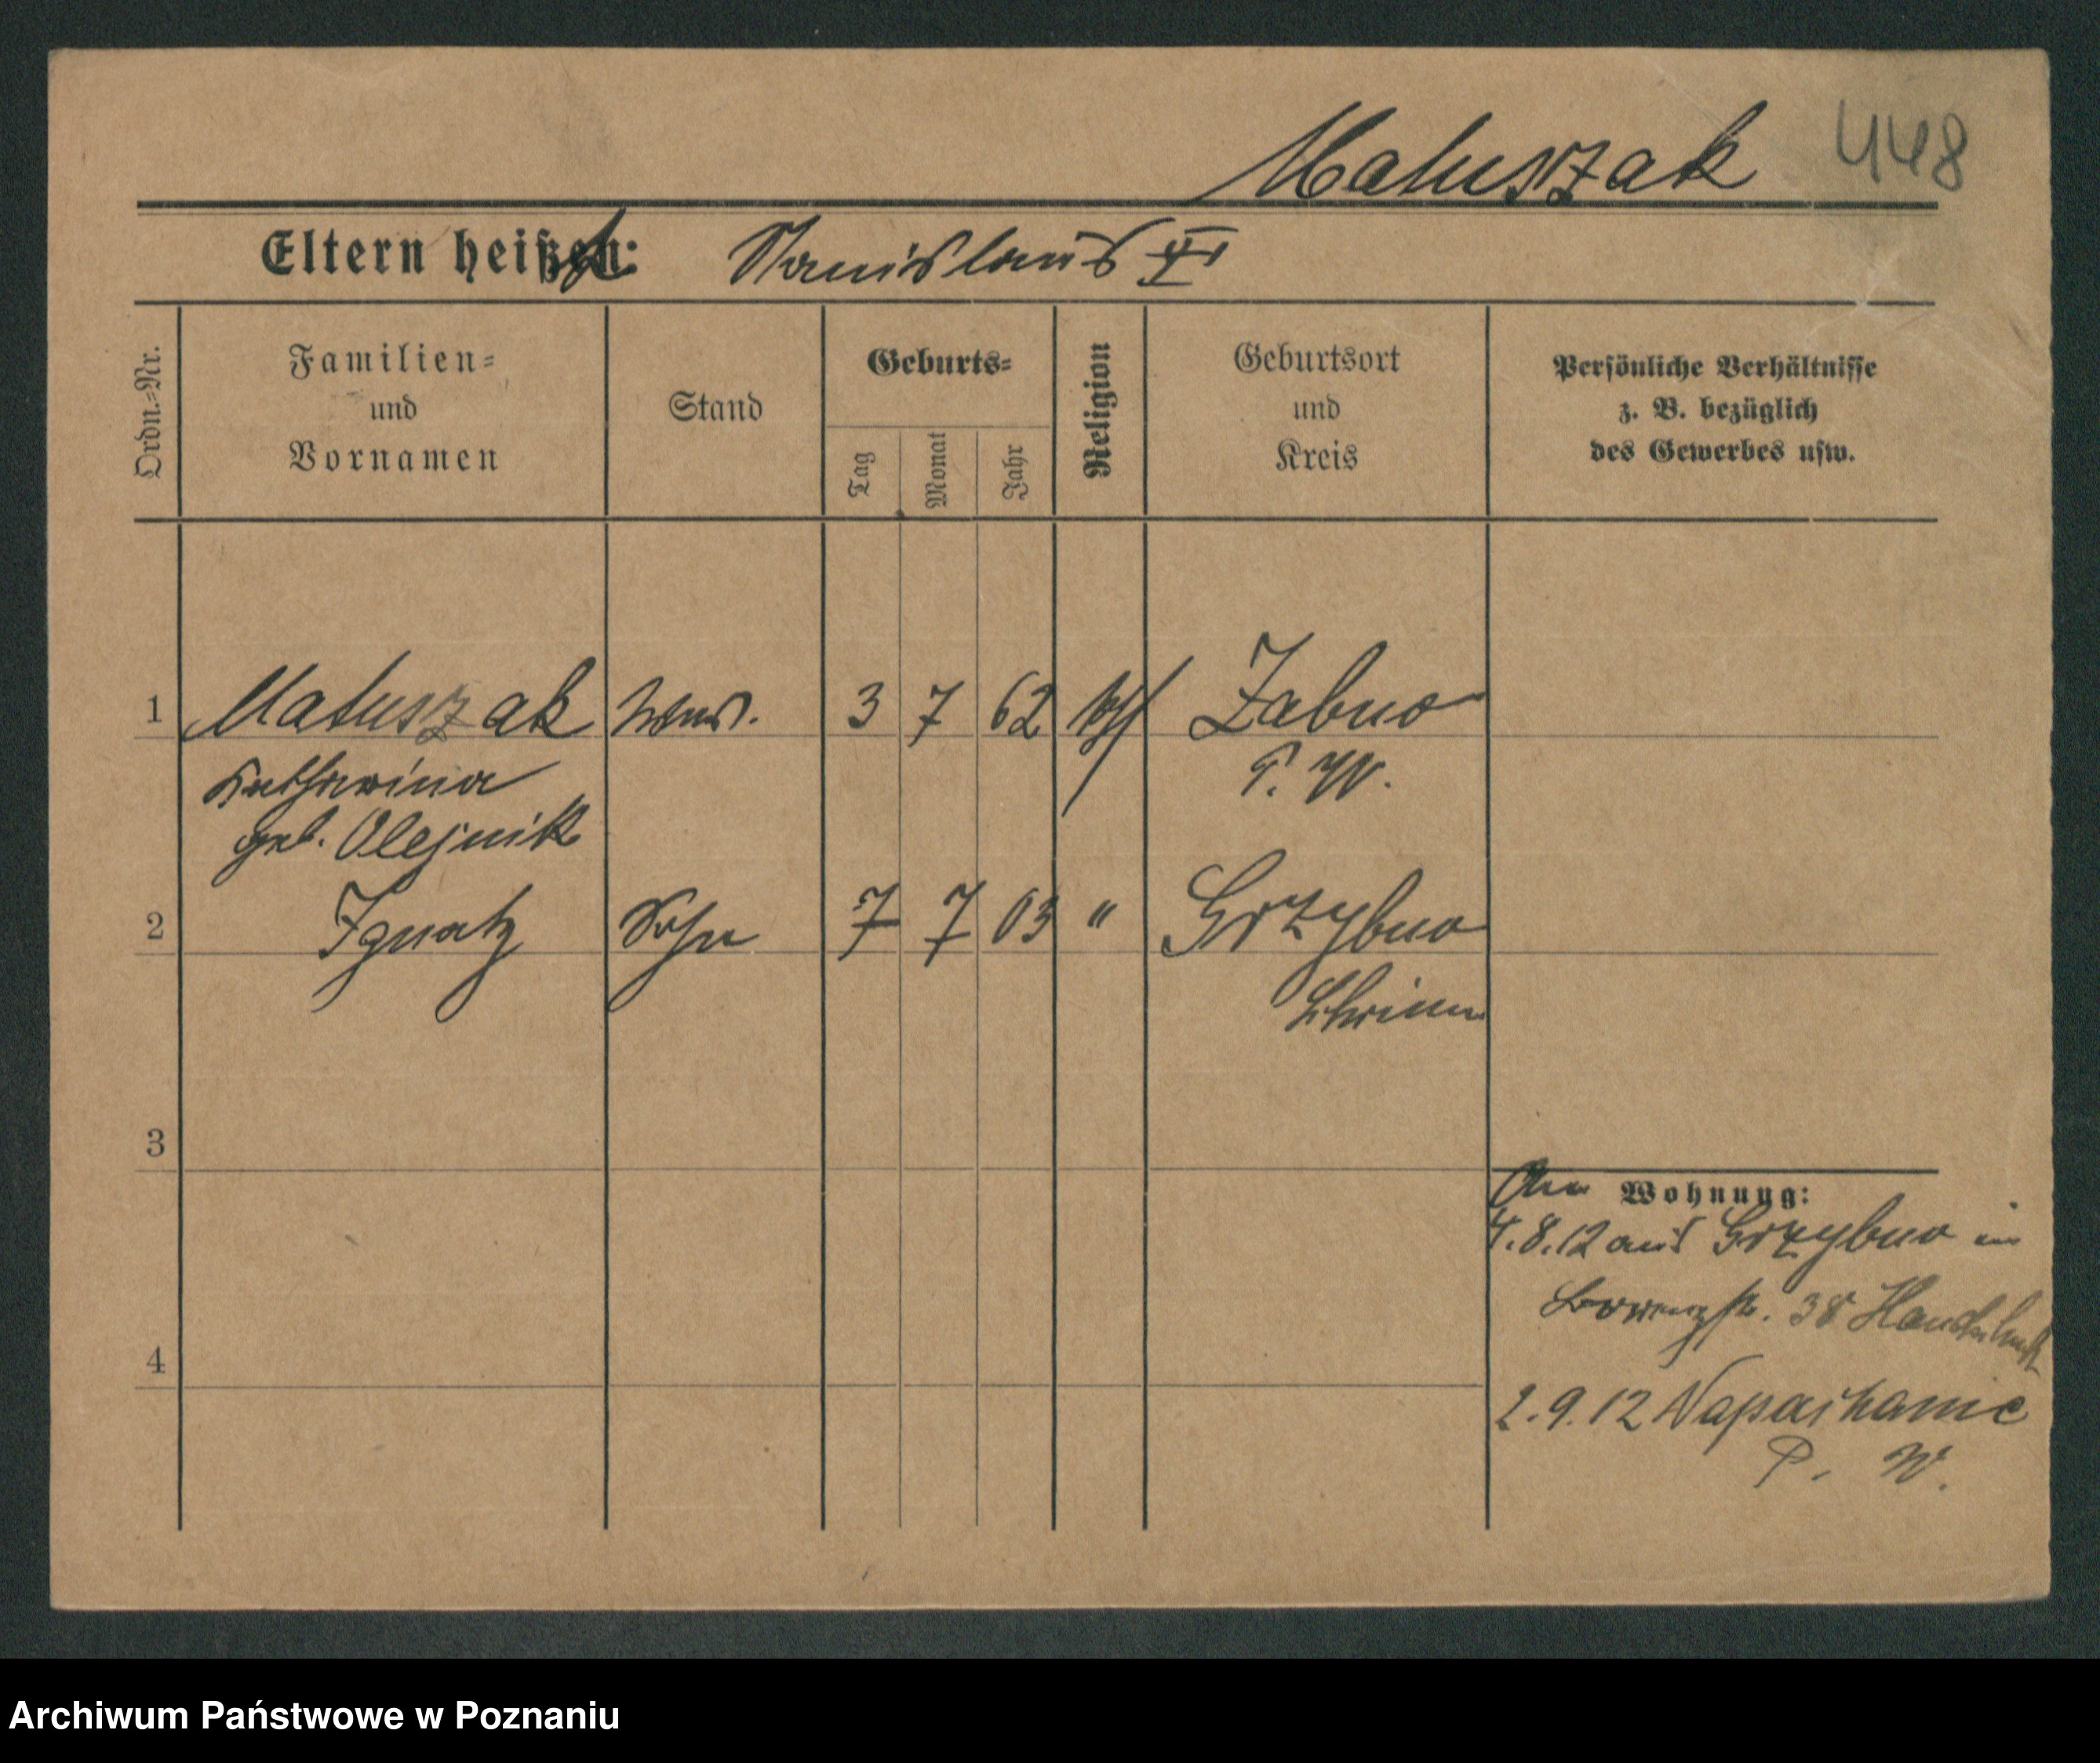 Matuszak 448
Eltern heißen: Stanislaus †
Ordn.-Nr.
Familien-
und
Vornamen
Stand
Geburts-
Tag
Monat
Jahr
Religion
Geburtsort
und
Kreis
Persönliche Verhältnisse
z. B. bezüglich
des Gewerbes usw.
1 Matuszak Wwe. 3 7 62 kath Zabno
Katharina P. W.
geb. Olejnik
2 Ignatz Sohn 7 7 03 " Grzybno
Schrimm
3
An Wohnung:
4.8.12 aus Grzybno in
38
4
2.9.12 Napachanie
P. W.
Archiwum Państwowe w Poznaniu